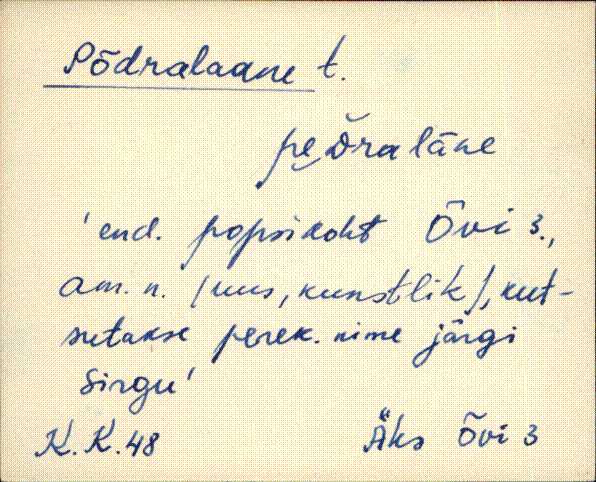 Põdralaane t.
pe̮D̆ra lāne
'end. popsikoht Õvi 3.,
am. n. (uus, kunstlik), kut-
sutakse perek. nime järgi
Sirgu'
K. K. 48 Äks Õvi 3